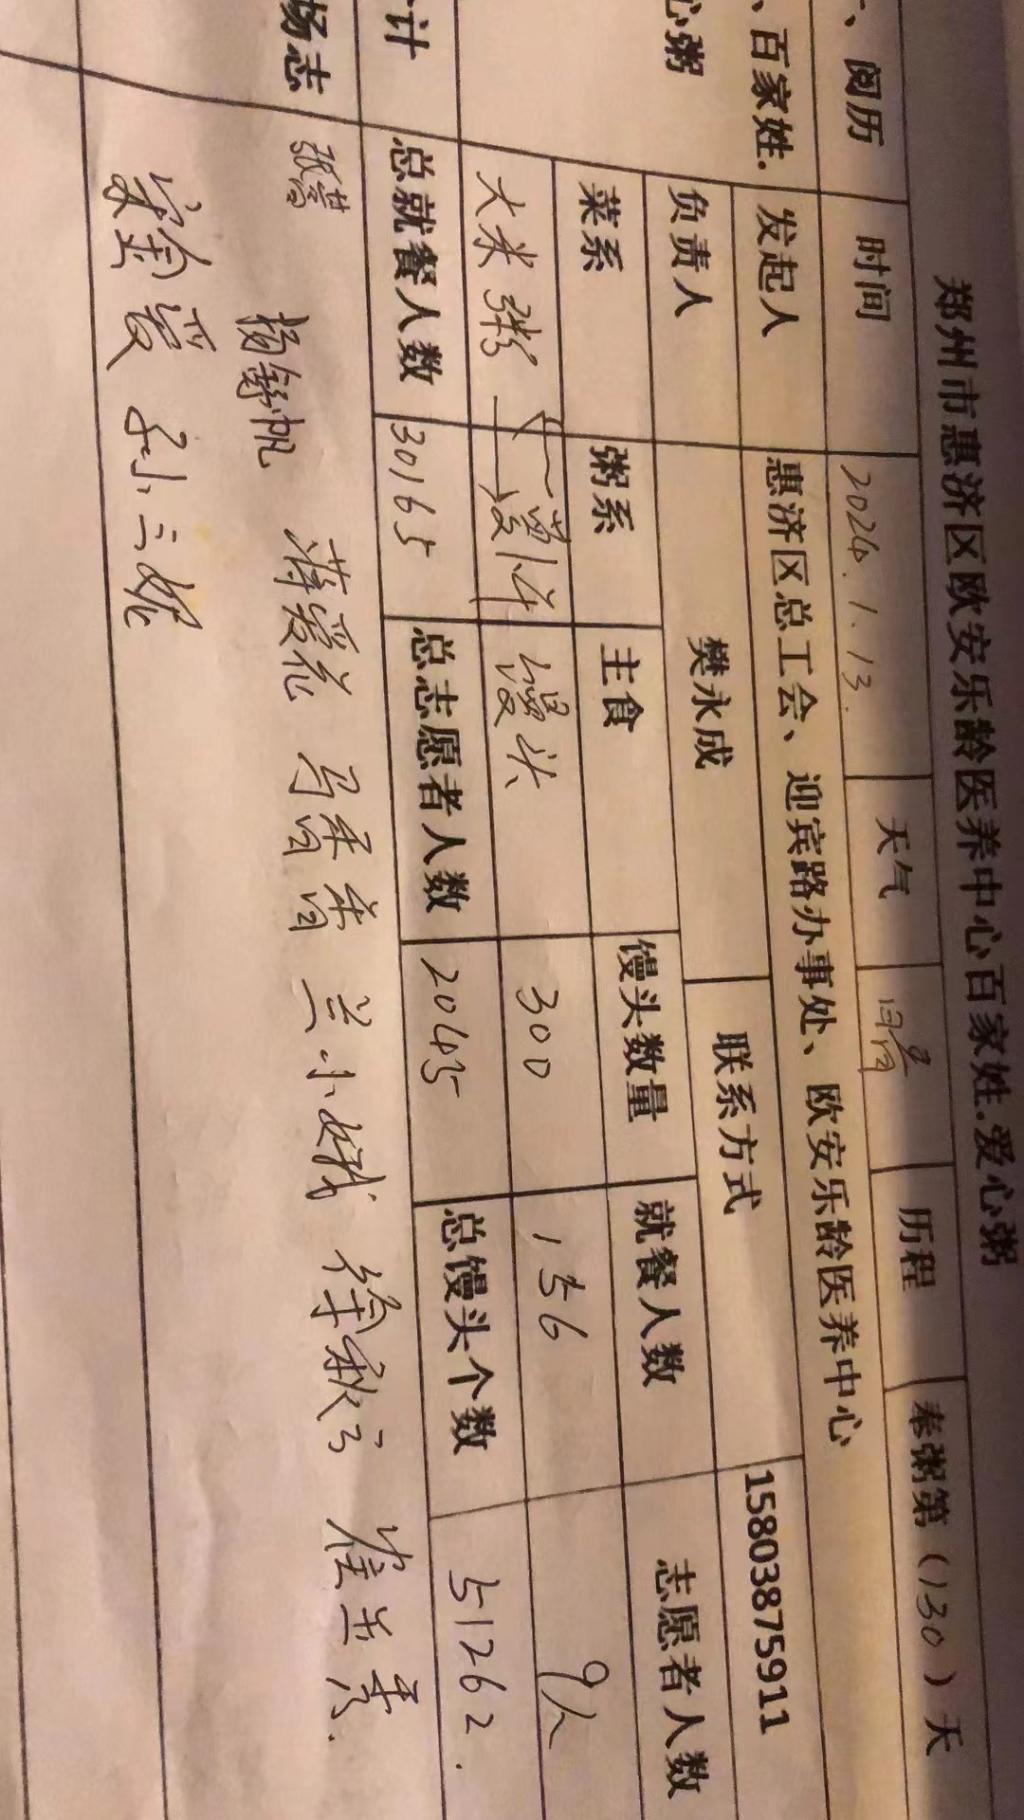 郑州市惠济区欧安乐龄医养中心百家姓.爱心粥
、阅历 时间 2024.1.13. 天气 历程 奉粥第（130）天
、百家姓. 发起人 惠济区总工会、迎宾路办事处、欧安乐龄医养中心
心粥 负责人 樊永成 联系方式 15803875911
菜系 粥系 主食 馒头数量 就餐人数 志愿者人数
大米粥 馒头 300 156 9人
计 总就餐人数 30165 总志愿者人数 20435 总馒头个数 51262.
场志 蒋爱花 马香香 兰小娥 徐秋云 崔玉秀.
杨舒帆
宋金爱 孙三妮